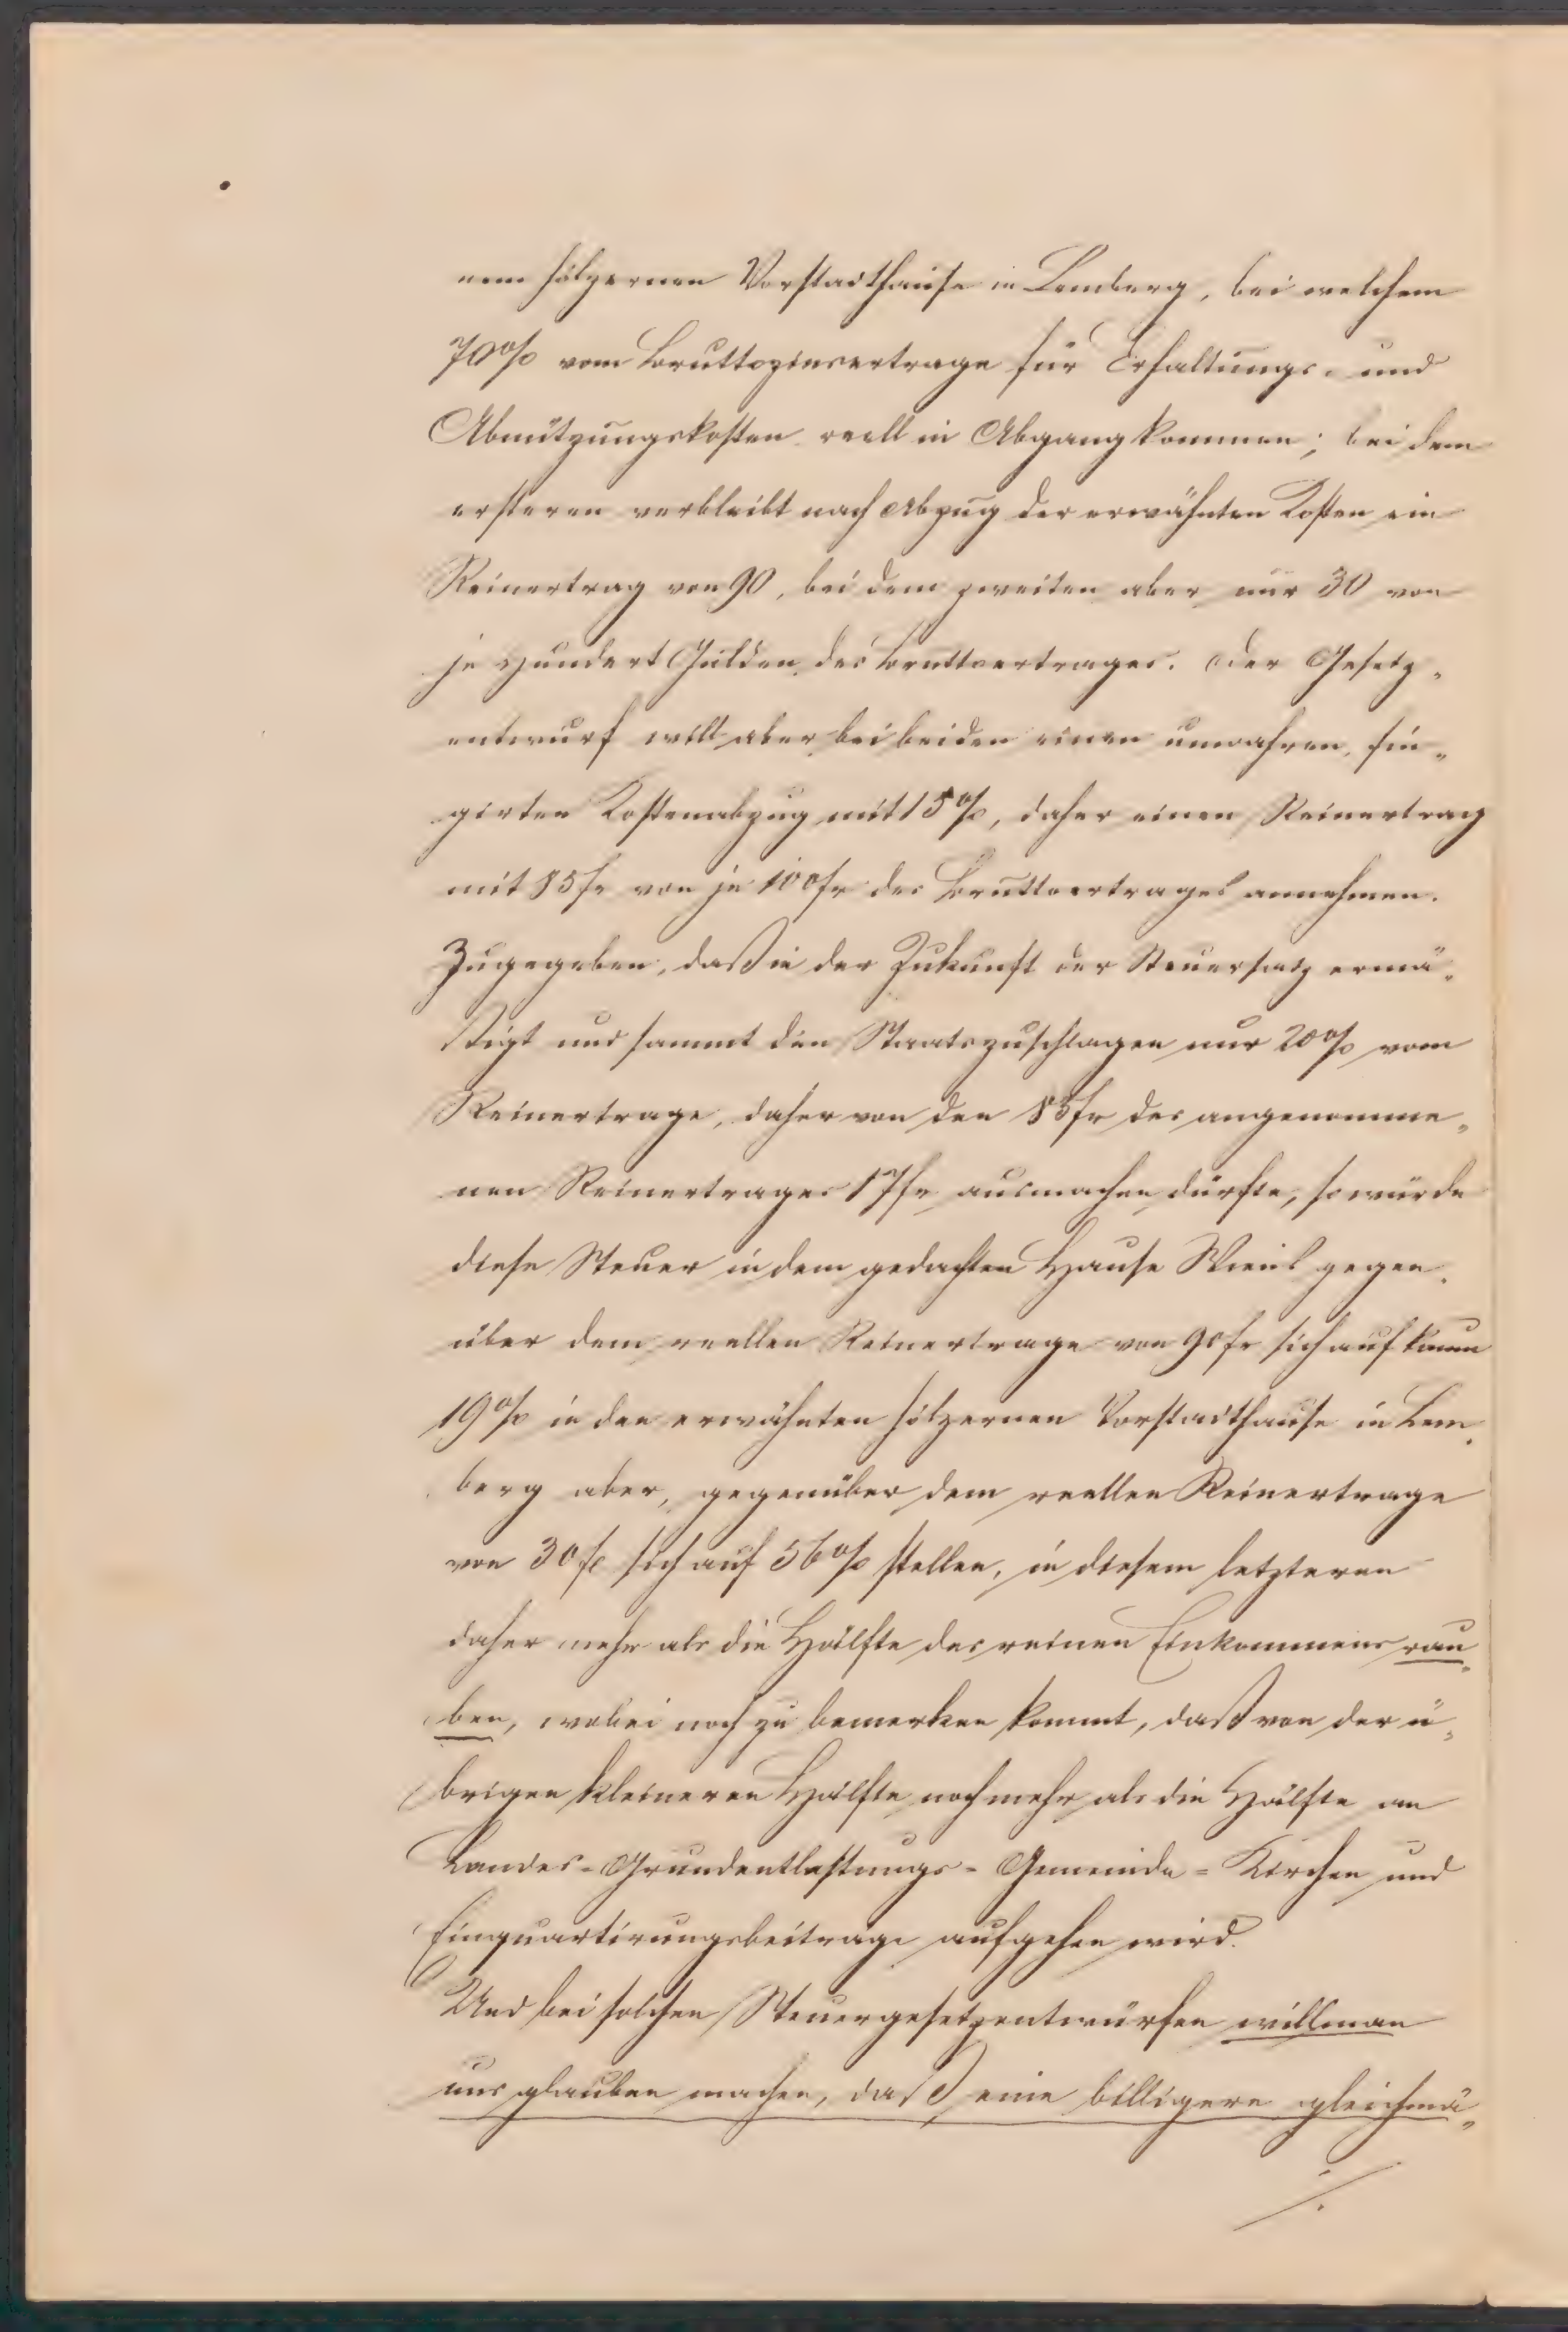 nem hölzernen Vorstadthause in Lemberg, bei welchem
70% vom Bruttozinsertrage für Erhaltungs- und
Abnützungskosten reell in Abgang kommen; bei dem
ersteren verbleibt nach Abzug der erwähnten Kosten ein
Reinertrag von 90, bei dem zweiten aber nur 30 von
je Hundert Gulden des Bruttoertrages. Der Gesetz-
entwurf will aber bei beiden einen unwahren, fin-
girten Kostenabzug mit 15%, daher einen Reinertrag
mit 85 fr von je 100 fr des Bruttoertrages annehmen.
Zugegeben, daß in der Zukunft der Steuersatz ermä-
ßigt und sammt den Staatszuschlagen nur 20% vom
Reinertrage, daher von den 85 fr des angenomme-
nen Reinertrages 17 fr ausmachen dürfte, so würde
diese Steuer in dem gedachten Hause Wiens gegen-
über dem reellen Reinertrage von 90 fr sich auf kaum
19% in den erwähnten hölzernen Vorstadthause in Lem-
berg aber, gegenüber dem reellen Reinertrage
von 30 fr sich auf 56% stellen, in diesem letzteren
daher mehr als die Hälfte des reinen Einkommens rau-
ben, wobei noch zu bemerken kommt, daß von der ü-
brigen kleineren Hälfte noch mehr als die Hälfte an
Landes-Grundentlastungs-Gemeinde-Kirchen und
Einquartirungsbeiträge aufgehen wird.
Und bei solchen Steuergesetzentwürfen will man
uns glauben machen, daß eine billigere gleichmä-
./.